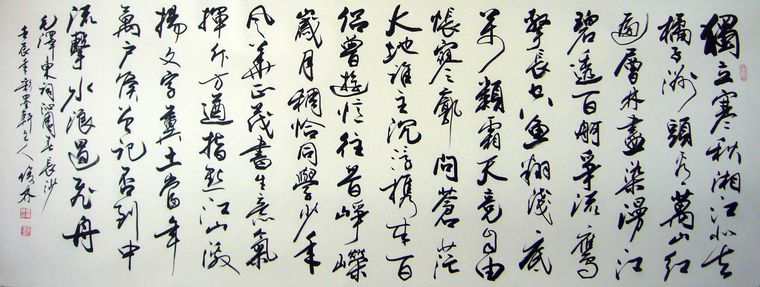 獨立寒秋湘江北去
橘子洲頭看萬山紅
遍層林盡染漫江
碧透百舸爭流鷹
擊長空魚翔淺底
萬類霜天競自由
悵寥廓問蒼茫
大地誰主沉浮携來百
侶曾遊憶往昔崢嶸
歲月稠恰同學少年
風華正茂書生意氣
揮斥方遒指點江山激
揚文字糞土當年
萬户侯曾記否到中
流擊水浪遏飛舟
毛澤東詞沁園春長沙
壬辰 軒主人